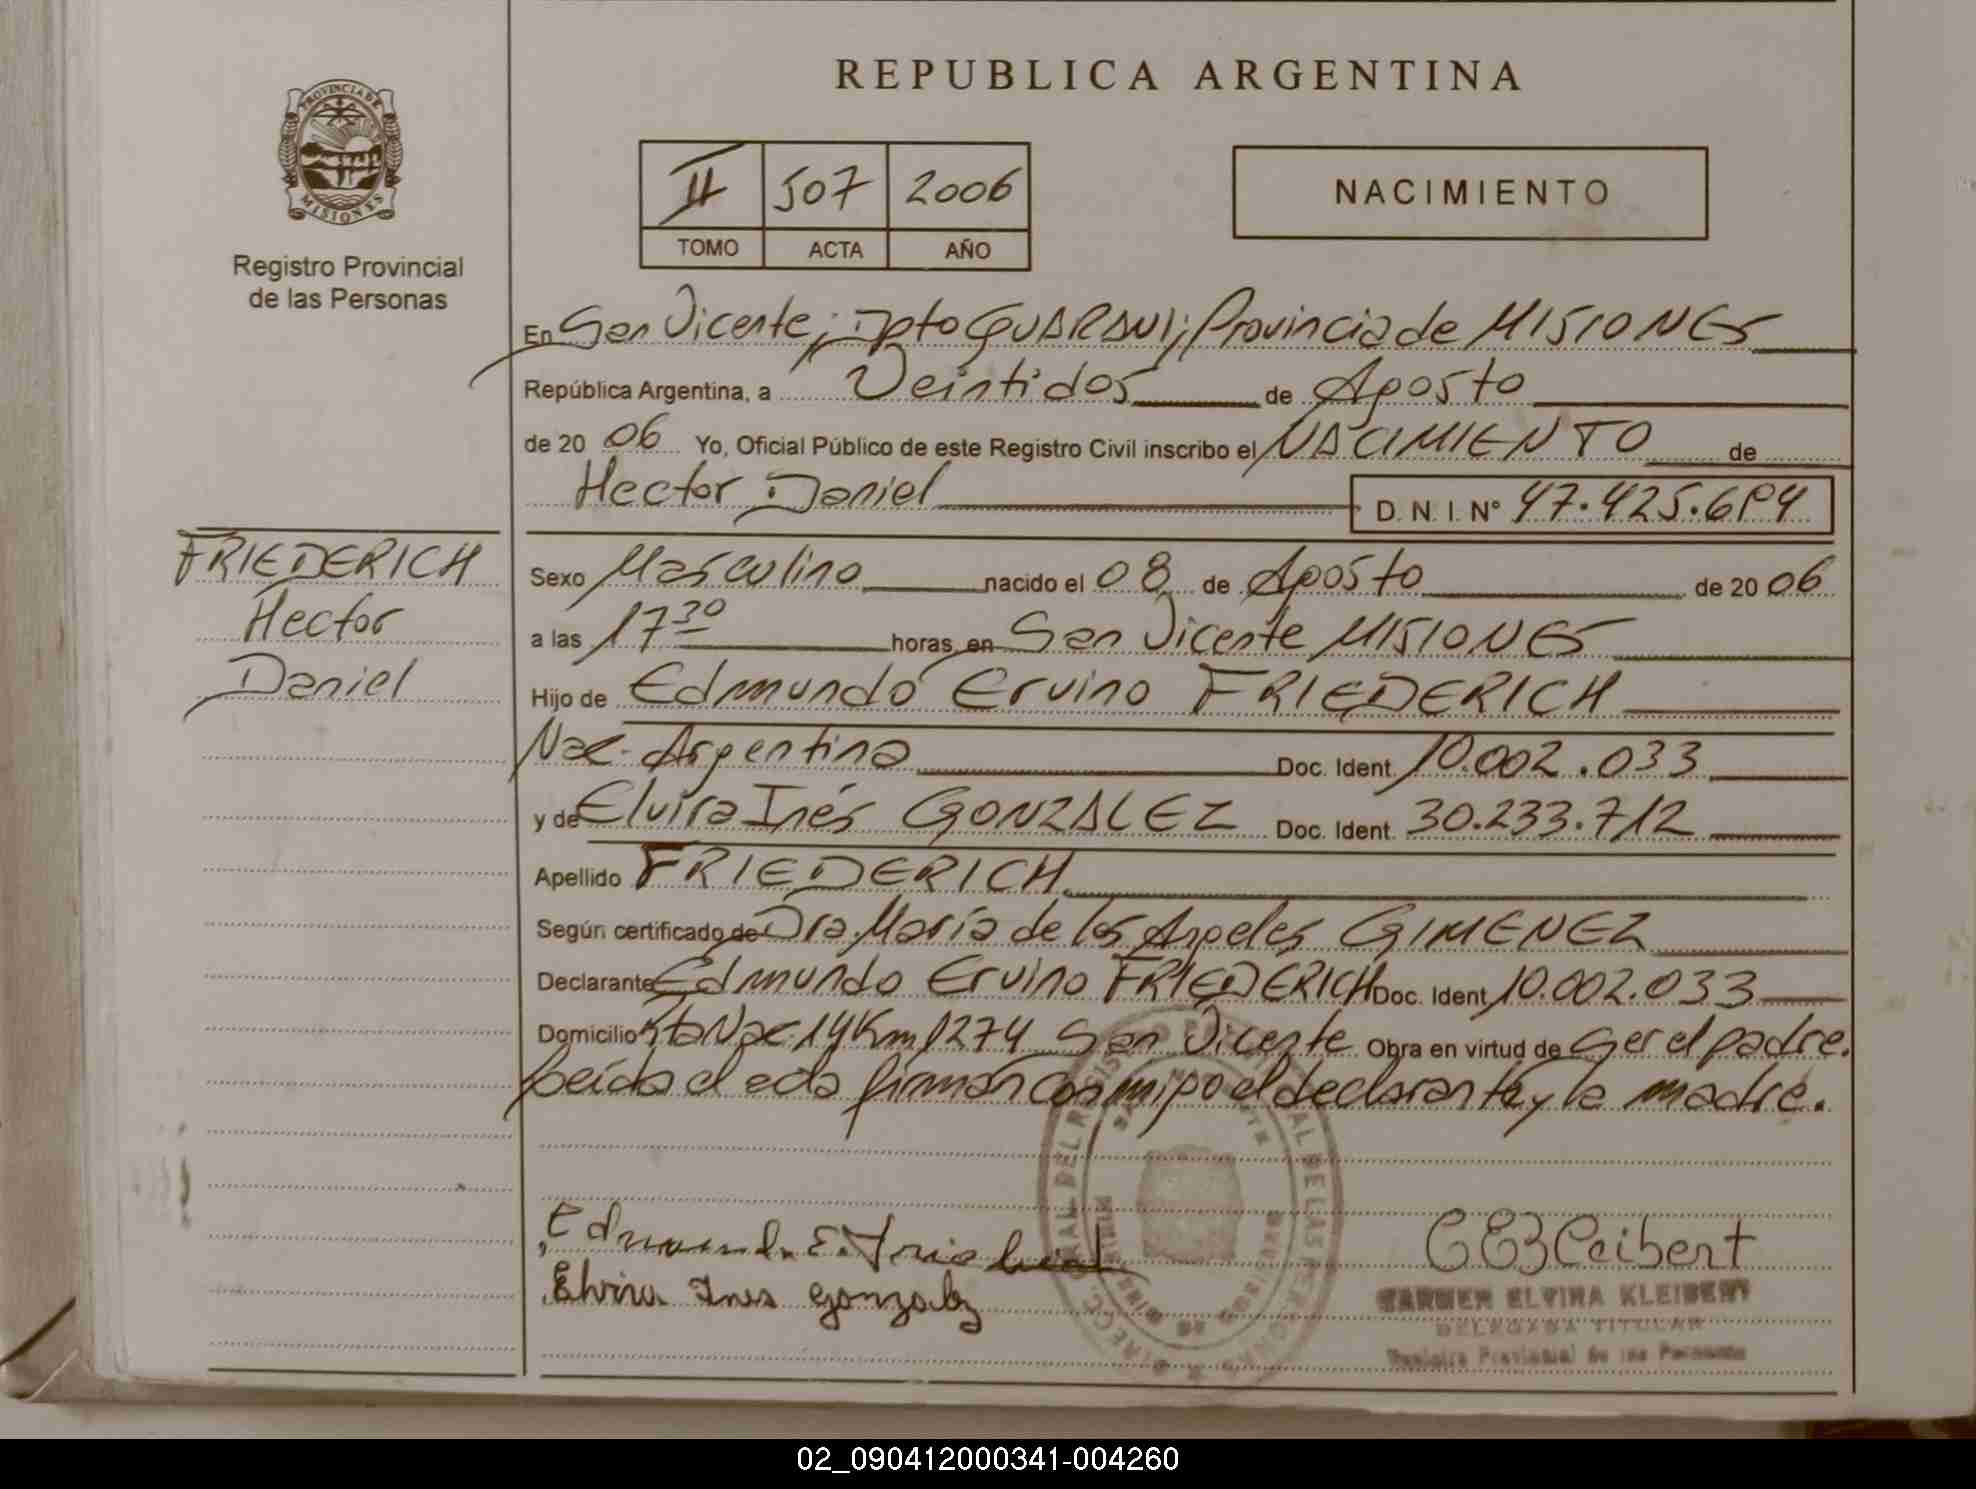 REPUBLICA ARGENTINA
PROVINCIA DE
MISIONES
Registro Provincial
de las Personas
II 507 2006
TOMO ACTA AÑO
NACIMIENTO
En San Vicente, Dpto GUARANI; Provincia de MISIONES
República Argentina, a Veintidos de Agosto
de 20 06 Yo, Oficial Público de este Registro Civil inscribo el NACIMIENTO de
Hector Daniel D. N. I. N° 47.425.694
FRIEDERICH
Hector
Daniel
Sexo Masculino nacido el 08 de Agosto de 20 06
a las 17 30 horas en San Vicente MISIONES
Hijo de Edmundo Ervino FRIEDERICH
Nac. Argentina Doc. Ident. 10.002.033
y de Elvira Inés GONZALEZ Doc. Ident. 30.233.712
Apellido FRIEDERICH
Según certificado de Dra. María de los Angeles GIMENEZ
Declarante Edmundo Ervino FRIEDERICH Doc. Ident. 10.002.033
Domicilio Rta Nac. 14 Km 1274 San Vicente Obra en virtud de Ser el padre.
Leída el acta firman conmigo el declarante y la madre.
Edmundo E. Friederich
Elvira Ines Gonzalez
CEKleibert
CARMEN ELVIRA KLEIBERT
DELEGADA TITULAR
Registro Provincial de las Personas
02_090412000341-004260